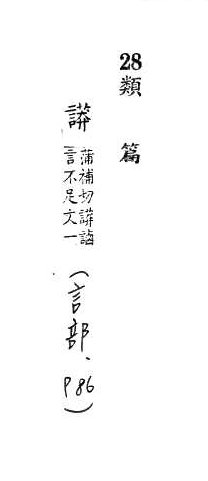 28
類篇
蒲補切
言不足文一
(言部、P86)